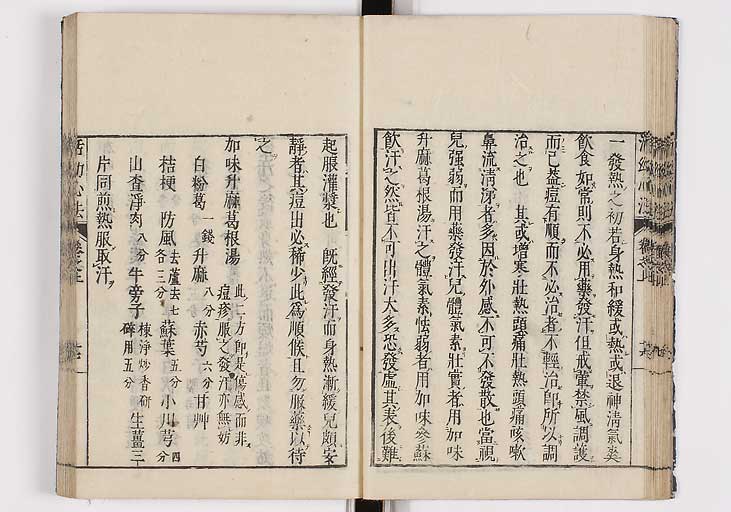 一發熱之初若身熱和緩或熱或退神清氣爽
飲食如常則不必用藥發汗但戒葷禁風調護
而已葢痘有順而不必治者不輕治卽所以調
治之也 其或增寒壯熱頭痛壯熱頭痛咳嗽
鼻流清涕者多因於外感不可不發散也當視
兒强弱而用藥發汗兒體氣素壯實者用加味
升麻葛根湯汗之體氣素怯弱者用加味參蘇
飲汗之然皆不可出汗太多恐發虛其表後難
起脹灌漿也 既經發汗而身熱漸緩兒頗安
靜者其痘出必稀少此爲順候且勿服藥以待
之
加味升麻葛根湯 此二方卽是傷感而非
痘疹服之發汗亦無妨
白粉葛一錢 升麻八分 赤芍六分 甘艸
桔梗 防風去蘆去七各三分 蘇葉五分 小川芎四分
山查淨肉八分 牛旁子棟淨炒香研碎用五分 生薑三
片同煎熱服取汗
活幼心法 卷之三